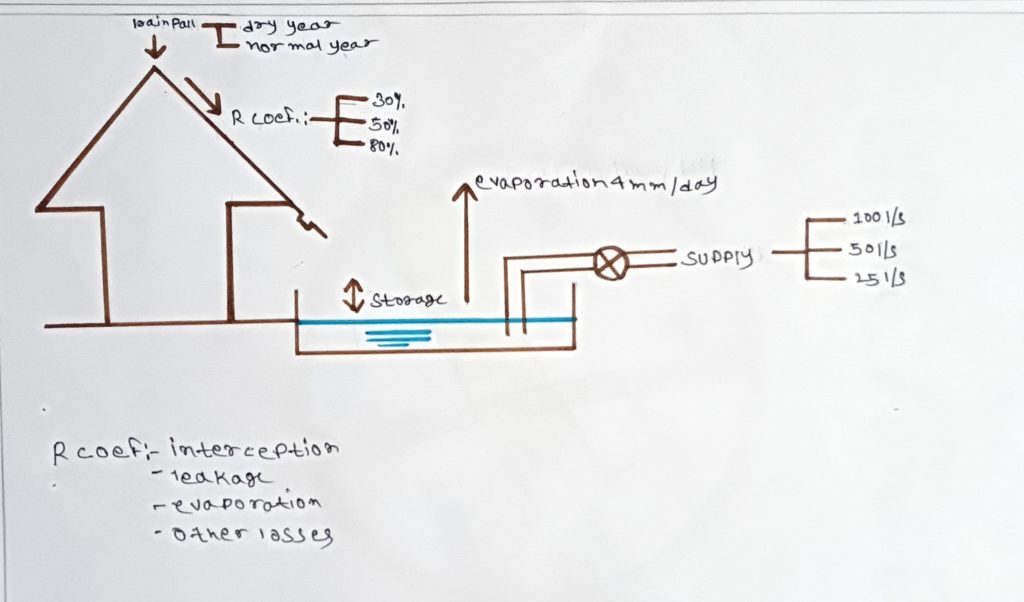 Rainfall
dry year
normal year
R coef.:-
30%
50%
80%
evaporation 4mm/day
SUPPLY
100 l/s
50 l/s
25 l/s
Storage
R coef:- interception
- leakage
- evaporation
- other losses